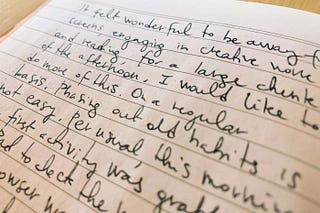 It felt wonderful to be away f
screens engaging in creative work
and reading for a large chunk
of the afternoon. I would like to
do more of this. On a regular
basis. Phasing out old habits is
not easy. Per usual this mornin
first activity was grab
to check the
owser wa